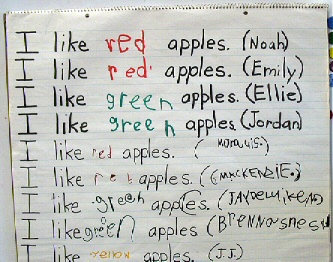 I like red apples. (Noah)
I like red apples. (Emily)
I like green apples. (Ellie)
I like green apples. (Jordan)
I like red apples. (Marquis.)
I like red apples. (GMACKENZIE.)
I like green apples.
I like green apples
I like yellow apples. (J.J.)